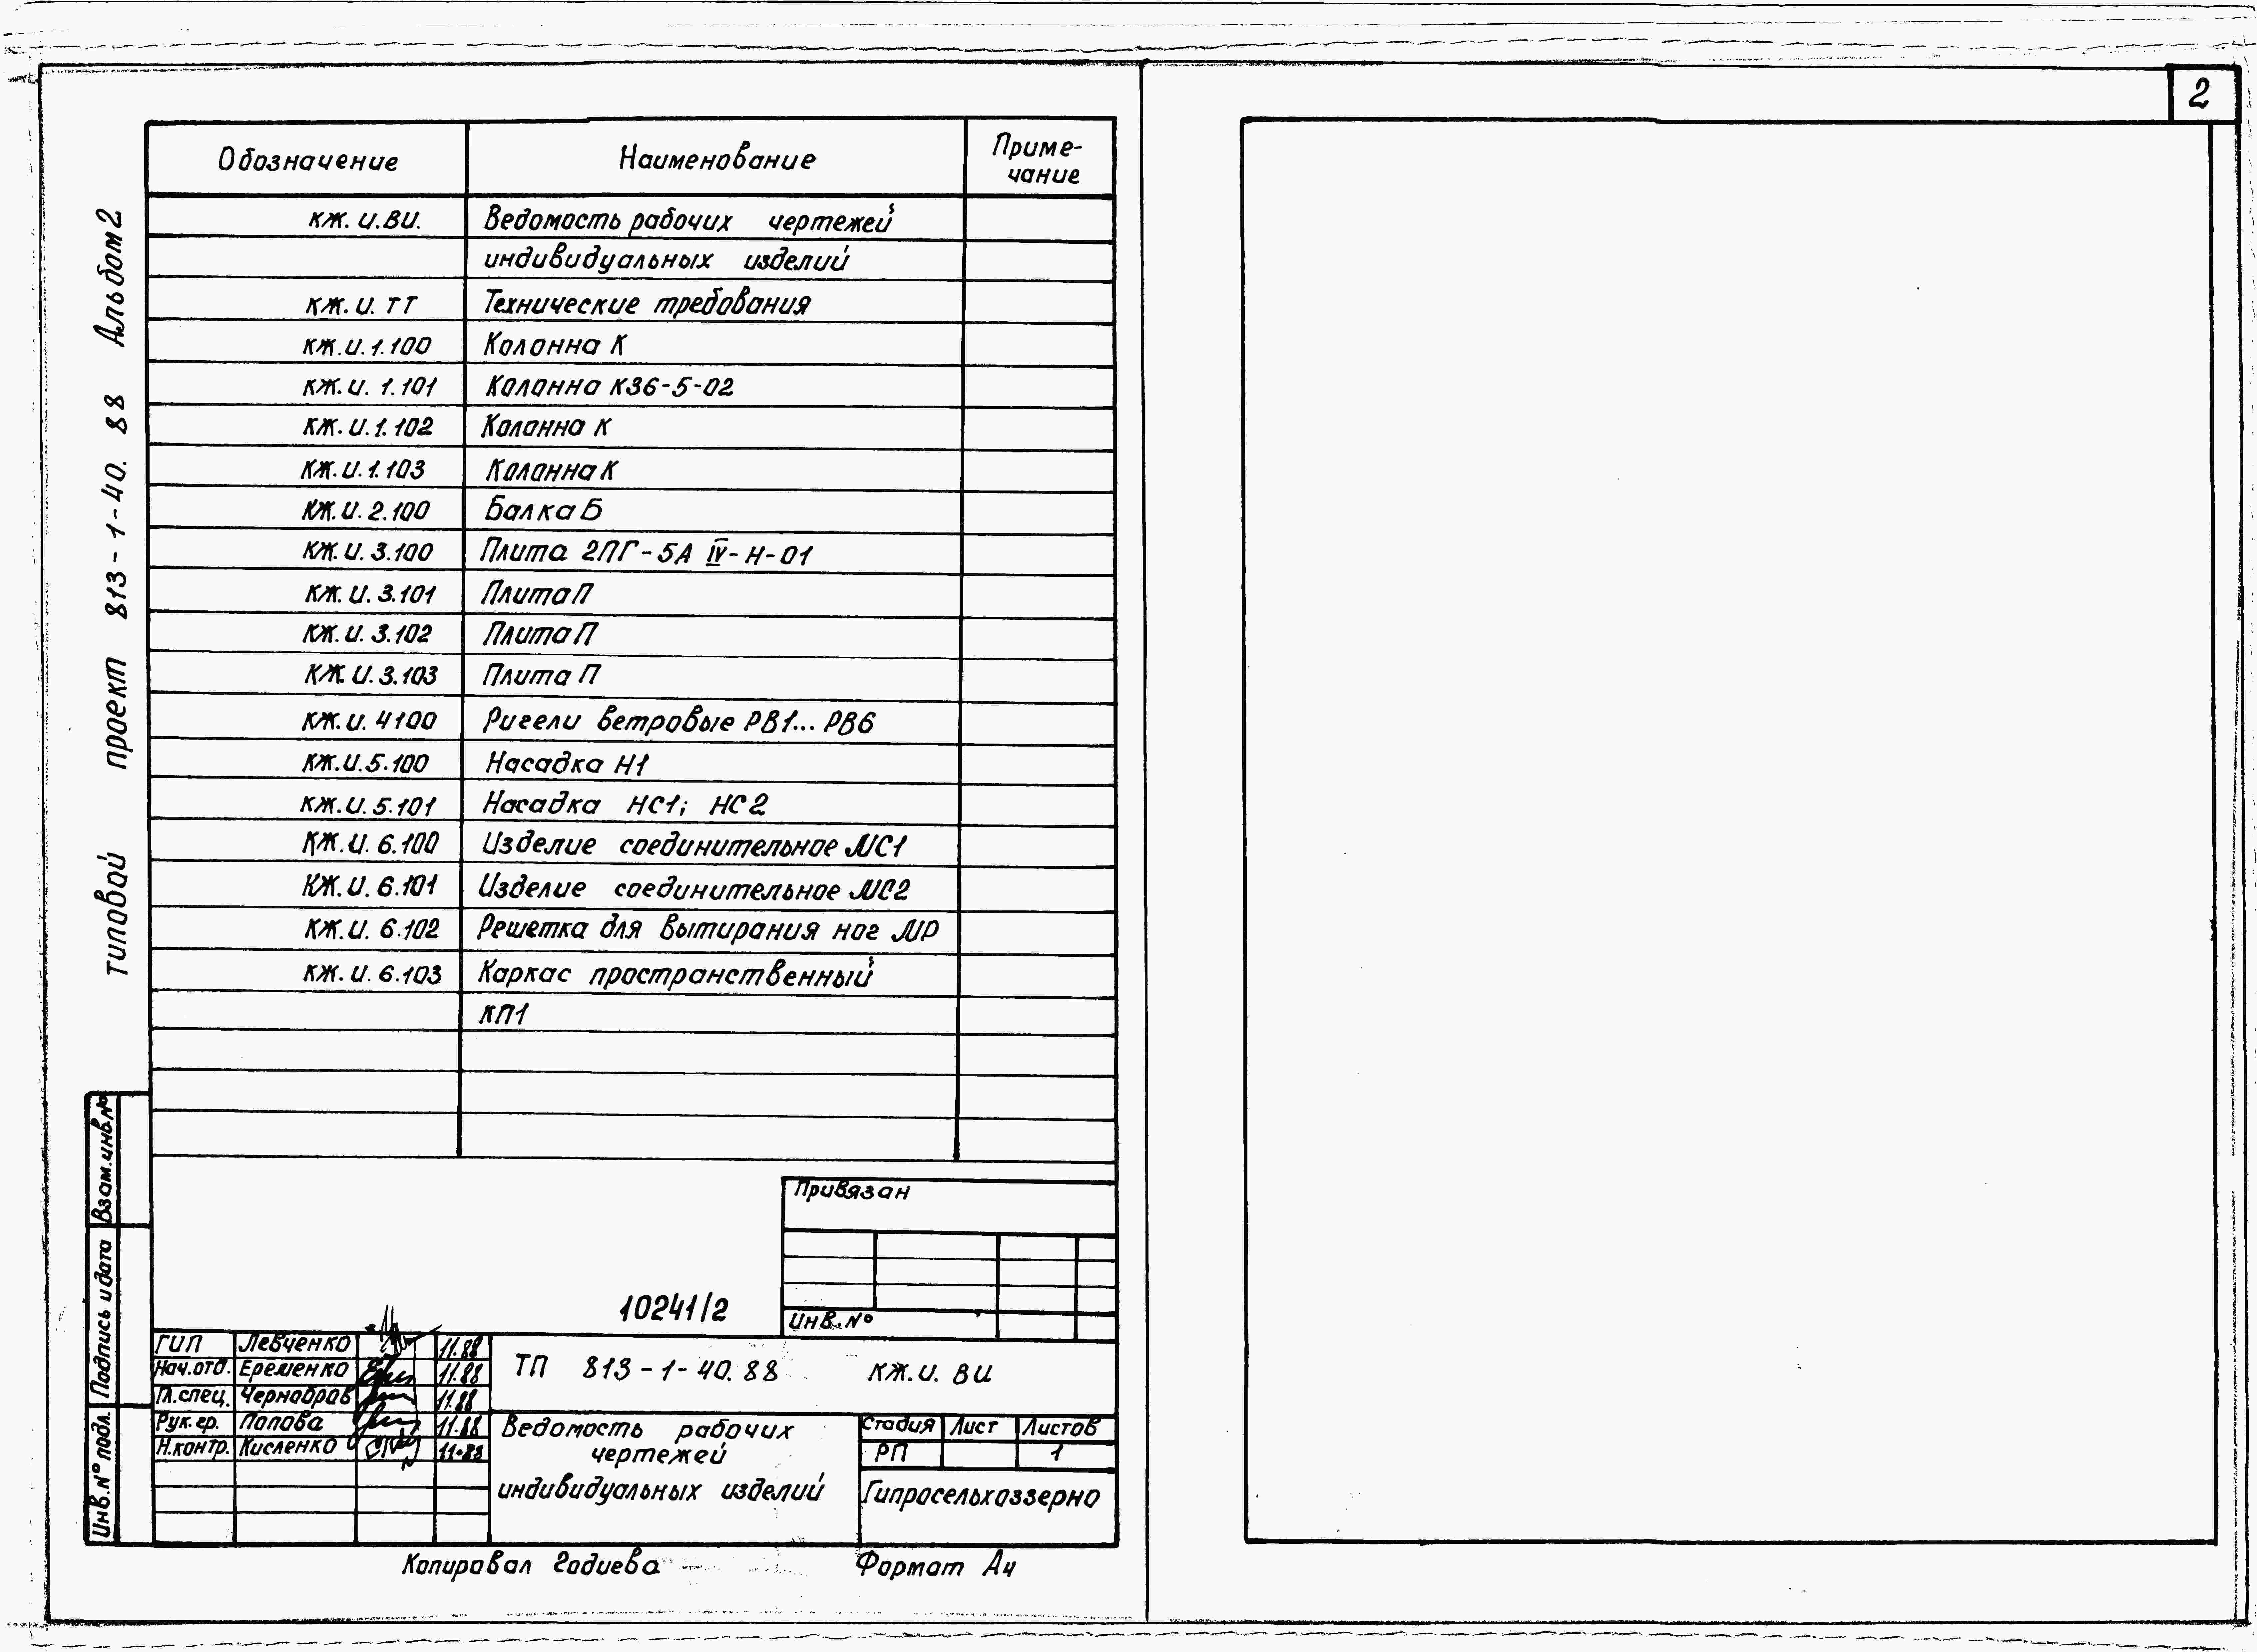 2
Типовой проект 813-1-40.88 Альбом 2
Обозначение Наименование Приме-
чание
КЖ.И.ВИ. Ведомость рабочих чертежей
индивидуальных изделий
КЖ.И.ТТ Технические требования
КЖ.И.1.100 Колонна К
КЖ.И.1.101 Колонна К36-5-02
КЖ.И.1.102 Колонна К
КЖ.И.1.103 Колонна К
КЖ.И.2.100 Балка Б
КЖ.И.3.100 Плита 2ПГ-5А IV-Н-01
КЖ.И.3.101 Плита П
КЖ.И.3.102 Плита П
КЖ.И.3.103 Плита П
КЖ.И.4100 Ригели ветровые РВ1...РВ6
КЖ.И.5.100 Насадка Н1
КЖ.И.5.101 Насадка НС1; НС2
КЖ.И.6.100 Изделие соединительное МС1
КЖ.И.6.101 Изделие соединительное МС2
КЖ.И.6.102 Решетка для вытирания ног МР
КЖ.И.6.103 Каркас пространственный
КП1
Взам.инв.№
Подпись и дата
Инв.№ подл.
Привязан
Инв.№
10241/2
ГИП Левченко 11.88
Нач.отд. Еременко 11.88
Гл.спец. Чернобров 11.88
Рук.гр. Попова 11.88
Н.контр. Кисленко 11.88
ТП 813-1-40.88 КЖ.И.ВИ
Ведомость рабочих
чертежей
индивидуальных изделий
Стадия Лист Листов
РП 1
Гипросельхоззерно
Копировал Годиева Формат А4